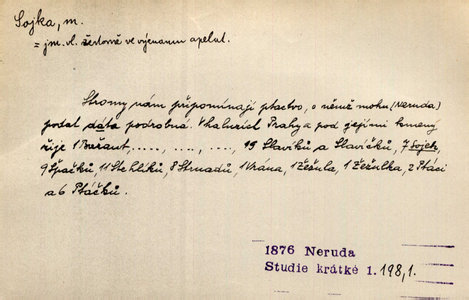 Sojka, m.
= jm. vl. žertovně ve významu apelat.
Stromy nám připomínají ptactvo, o němž mohu (Neruda)
podat data podrobná. V haluzích Prahy a pod jejími kmeny
žije 1 Bažant, ....., ...., ...., 19 Slavíků a Slavíčků, 7 Sojek,
9 Špačků, 11 Stehlíků, 8 Strnadů, 1 Vrána, 1 Žežula, 1 Žežulka, 2 Ptáci
a 6 Ptáčků.
1876 Neruda
Studie krátké 1. 198,1.